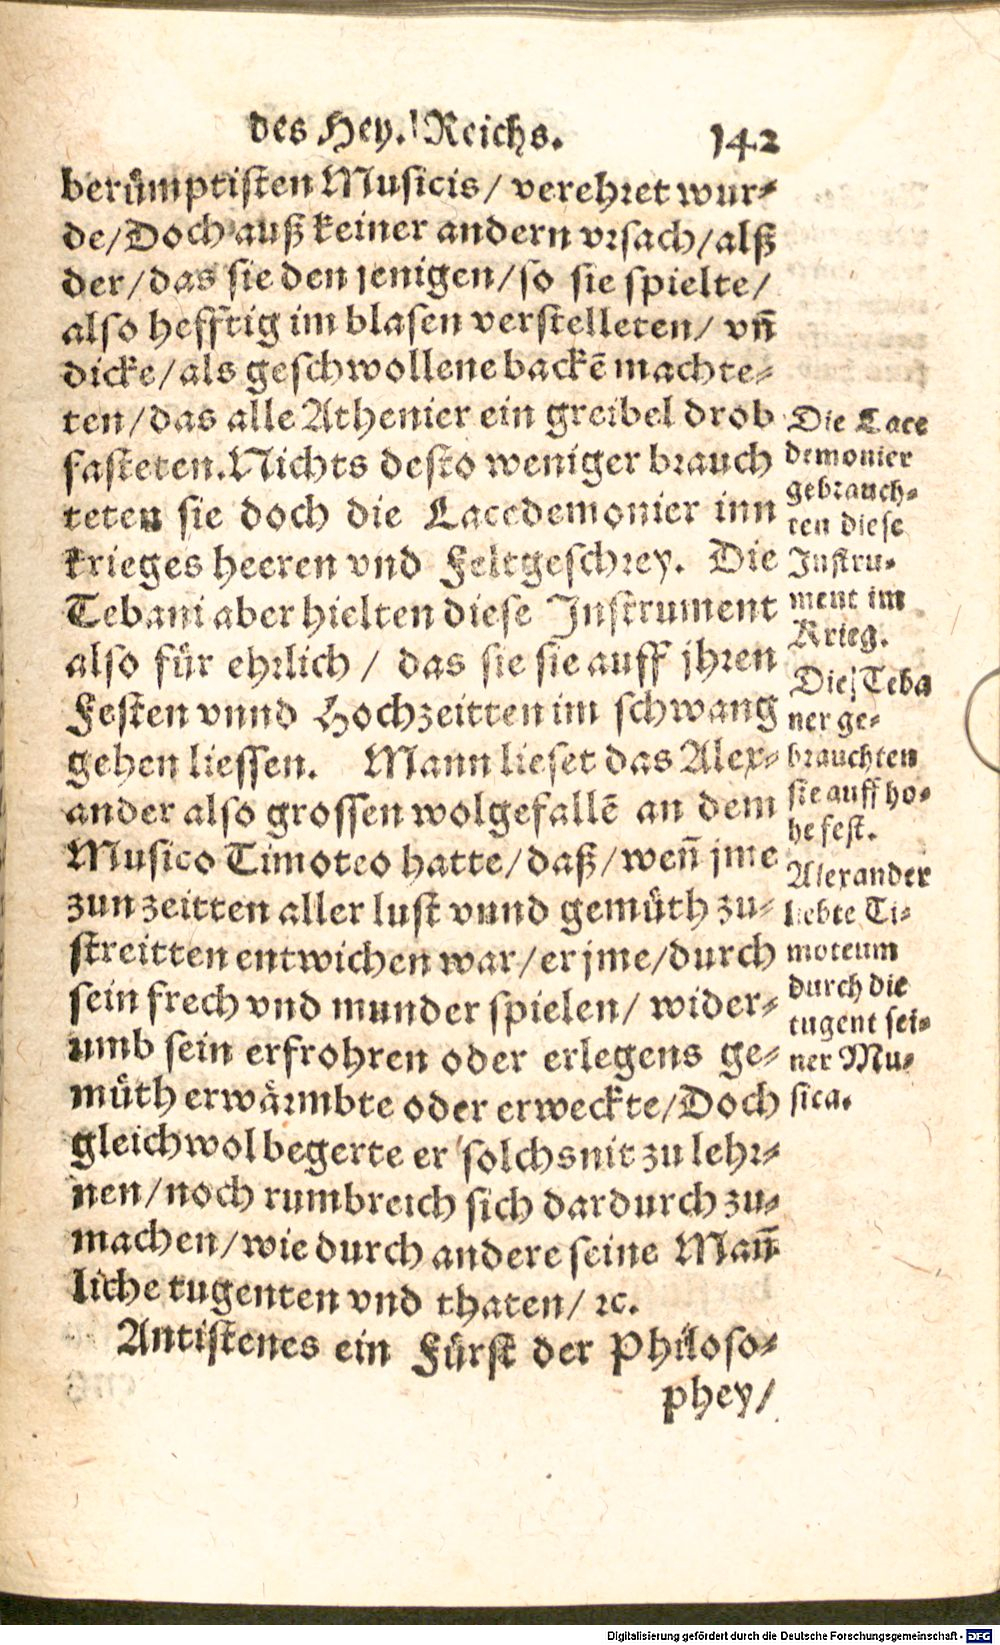 des Hey. Reichs. 142
berümptisten Musicis/ verehret wur-
de/Doch auß keiner andern vrsach/alß
der/das sie den jenigen/so sie spielte/
also hefftig im blasen verstelleten/ vn̄
dicke/als geschwollene backē machte-
ten/das alle Athenier ein greibel drob
fasteten. Nichts desto weniger brauch
teten sie doch die Lacedemonier inn
krieges heeren vnd Feltgeschrey. Die
Tebani aber hielten diese Instrument
also für ehrlich / das sie sie auff jhren
Festen vnnd Hochzeitten im schwang
gehen liessen. Mann lieset das Alex-
ander also grossen wolgefallē an dem
Musico Timoteo hatte/daß/wen̄ jme
zun zeitten aller lust vnnd gemüth zu-
streitten entwichen war/er jme/durch
sein frech vnd munder spielen/ wider-
umb sein erfrohren oder erlegens ge-
müth erwärmbte oder erweckte/Doch
gleichwol begerte er solchs nit zu lehr-
nen/noch rumbreich sich dardurch zu-
machen/wie durch andere seine Man̄
liche tugenten vnd thaten/ ꝛc.
Antistenes ein Fürst der Philoso-
phey/
Die Lace
demonier
gebrauch-
ten diese
Instru-
ment im
Krieg.
Die Teba
ner ge-
brauchten
sie auff ho-
he fest.
Alexander
liebte Ti-
moteum
durch die
tugent sei-
ner Mu-
sica.
Digitalisierung gefördert durch die Deutsche Forschungsgemeinschaft - DFG